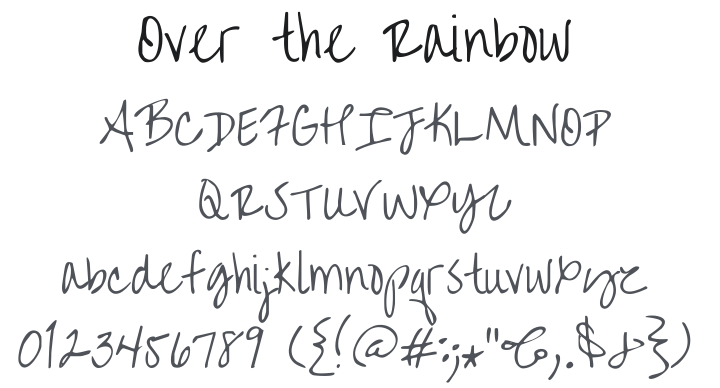 Over the Rainbow
ABCDEFGHIJKLMNOP
QRSTUVWXYZ
abcdefghijklmnopqrstuvwxyz
0123456789 ({!@#:;*"%,.$&})